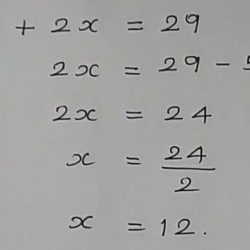 + 2x = 29
2x = 29 -
2x = 24
x = 24/2
x = 12.